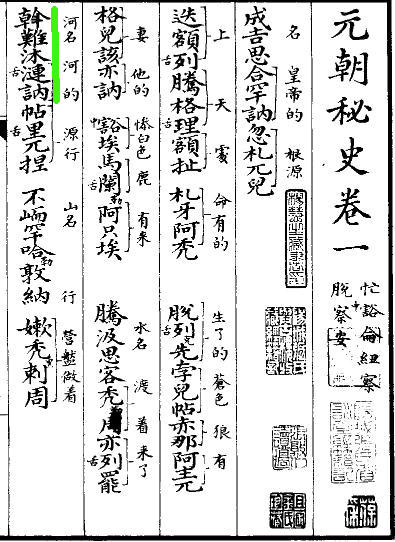 元朝秘史卷一
忙豁侖紐察
脫察安
名 皇帝的 根源
成吉思合罕訥忽札兀兒
上 天 處 命有的 生了的 蒼色 狼 有
迭額列舌騰格理舌額扯 札牙阿禿 脫列舌克先孛兒帖赤那阿主兀
妻 他的 慘白色 鹿 有来 水名 渡着 来了
格兒該亦訥 中豁埃馬舌闌勒阿只埃 騰汲思客禿周亦列舌罷
河名 河的 源行 山名 行 營盤做着
斡難沐舌漣訥帖舌里兀揑 不峏罕哈勒敦納 嫰禿剌周